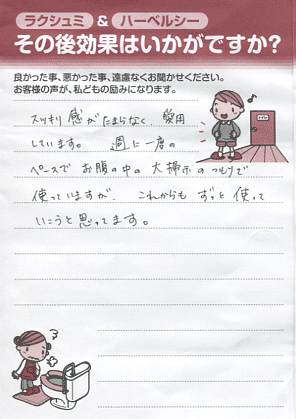 ラクシュミ & ハーベルシー
その後効果はいかがですか?
良かった事、悪かった事、遠慮なくお聞かせください。
お客様の声が、私どもの励みになります。
スッキリ感がたまらなく、愛用
しています。 週に一度の
ペースで お腹の中の大掃示のつもりで
使っていますが、これからも ずっと使って
いこうと思ってます。